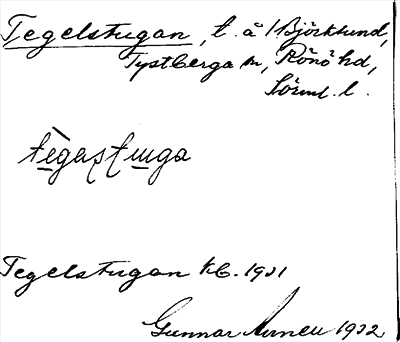 Tegelstugan, t. å 1 Björklund,
Tystberga sn, Rönö hd,
Sörml. l.
tègastuga
Tegelstugan kb. 1931
Gunnar 1932